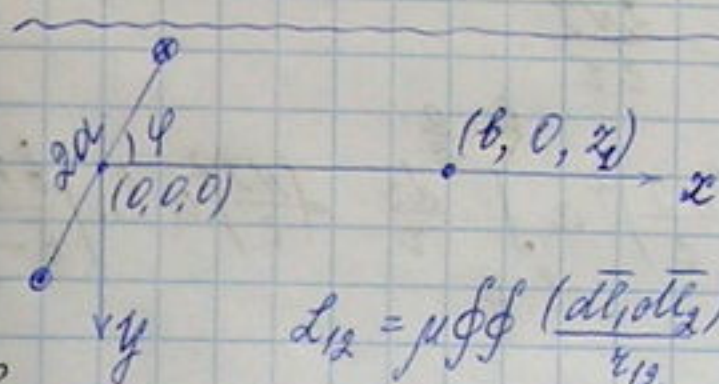 2a φ
(0,0,0)
(b, 0, z₁)
x
y
L₁₂ = μ∮∮ (dl̄₁dl̄₂)/r₁₂